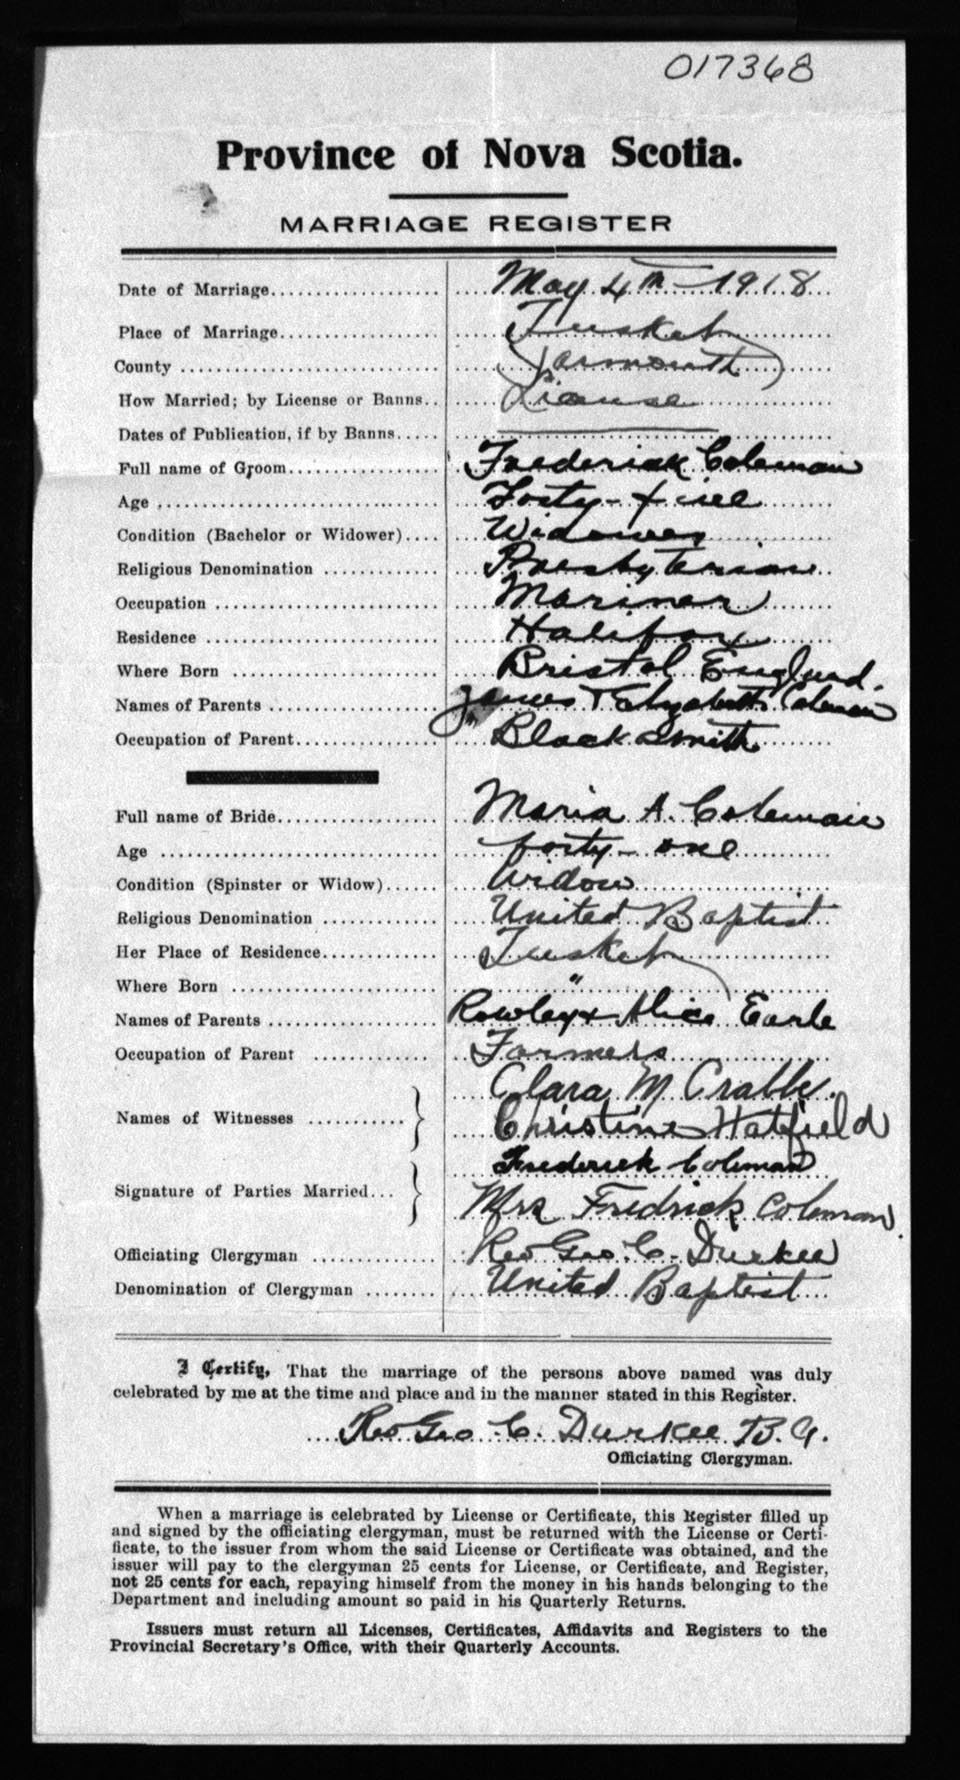 017368
Province of Nova Scotia.
MARRIAGE REGISTER
Date of Marriage.................... May 4th 1918
Place of Marriage................... Tusket
County .............................. Yarmouth
How Married; by License or Banns.. License
Dates of Publication, if by Banns.....
Full name of Groom.................. Frederick Coleman
Age ................................ Forty-five
Condition (Bachelor or Widower).... Widower
Religious Denomination ............. Presbyterian
Occupation ......................... Mariner
Residence .......................... Halifax
Where Born ......................... Bristol England.
Names of Parents ................... James & Elizabeth Coleman
Occupation of Parent................ Black Smith
Full name of Bride.................. Maria A. Coleman
Age ................................ forty-one
Condition (Spinster or Widow)...... Widow
Religious Denomination ............. United Baptist
Her Place of Residence.............. Tusket
Where Born ......................... "
Names of Parents ................... Rowley & Alice Earle
Occupation of Parent ............... Farmers
Names of Witnesses ........... Clara M Crabbe.
Christine Hatfield
Signature of Parties Married... Frederick Coleman
Mrs Fredrick Coleman.
Officiating Clergyman .............. Rev Geo. C. Durkee
Denomination of Clergyman ........ United Baptist
I Certify, That the marriage of the persons above named was duly
celebrated by me at the time and place and in the manner stated in this Register.
Rev Geo. C. Durkee B.A.
Officiating Clergyman.
When a marriage is celebrated by License or Certificate, this Register filled up
and signed by the officiating clergyman, must be returned with the License or Certi-
ficate, to the issuer from whom the said License or Certificate was obtained, and the
issuer will pay to the clergyman 25 cents for License, or Certificate, and Register,
not 25 cents for each, repaying himself from the money in his hands belonging to the
Department and including amount so paid in his Quarterly Returns.
Issuers must return all Licenses, Certificates, Affidavits and Registers to the
Provincial Secretary's Office, with their Quarterly Accounts.